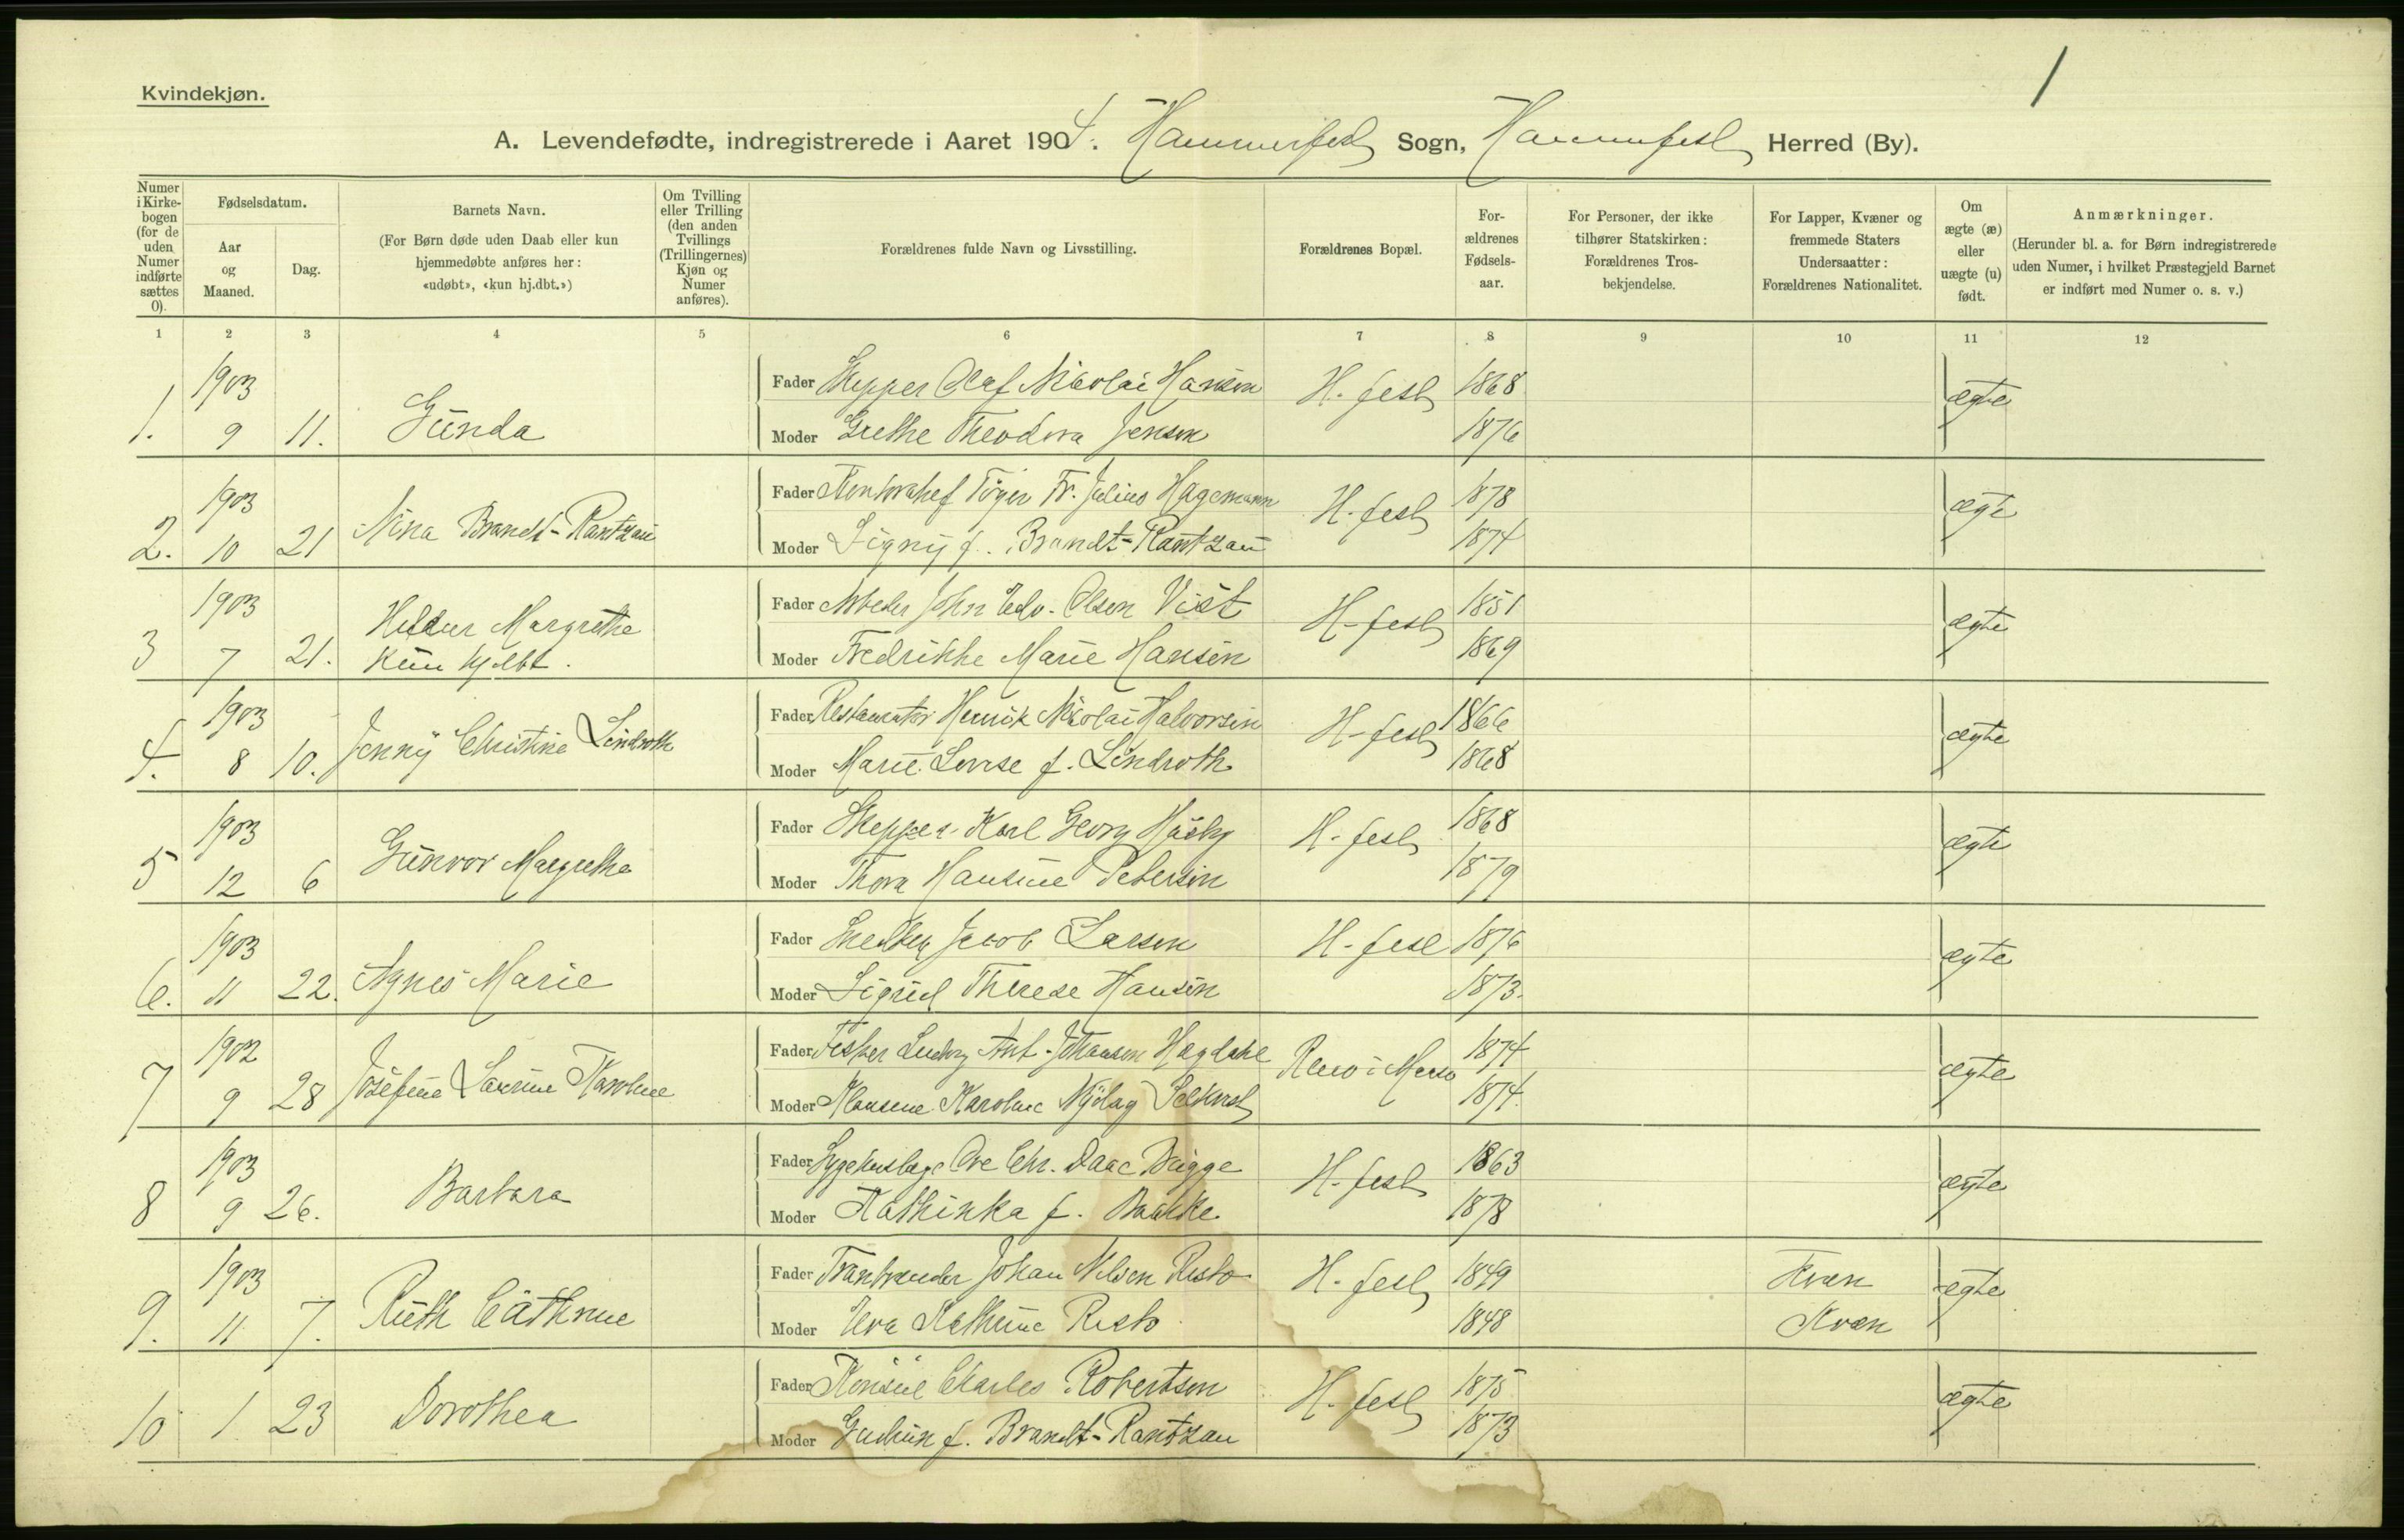 1
Kvindekjøn.
A. Levendefødte, indregistrerede i Aaret 1904. Hammerfest Sogn, Hammerfest Herred (By).
Numer i Kirkebogen (for de uden Numer indførte sættes 0).
Fødselsdatum.
Aar og Maaned.
Dag.
Barnets Navn.
(For Børn døde uden Daab eller kun
hjemmedøbte anføres her:
«udøbt», «kun hj.dbt.»)
Om Tvilling
eller Trilling
(den anden
Tvillings
(Trillingernes)
Kjøn og
Numer
anføres).
Forældrenes fulde Navn og Livsstilling.
Forældrenes Bopæl.
For-
ældrenes
Fødsels-
aar.
For Personer, der ikke
tilhører Statskirken:
Forældrenes Tros-
bekjendelse.
For Lapper, Kvæner og
fremmede Staters
Undersaatter:
Forældrenes Nationalitet.
Om
ægte (æ)
eller
uægte (u)
født.
Anmærkninger.
(Herunder bl. a. for Børn indregistrerede
uden Numer, i hvilket Præstegjeld Barnet
er indført med Numer o. s. v.)
1 2 3 4 5 6 7 8 9 10 11 12
1903 Fader Skipper Olaf Nikolai Hansen H.fest 1868 ægte
1. 9 11. Gunda Moder Grethe Theodora Jensen 1876
1903 Fader Kontorchef Tøger Fr. Julius Hagemann H.fest 1878 ægte
2. 10 21 Nina Brandt-Rantzau Moder Signy f. Brandt-Rantzau 1874
1903 Fader Arbeider John Edv. Olsen Vist H-fest 1851 ægte
3 7 21. Hildur Margrethe
kun hj.dbt. Moder Fredrikke Marie Hansen 1869
1903 Fader Restauratør Henrik Nikolai Halvorsen H-fest 1866 ægte
4. 8 10. Jenny Christine Lindroth Moder Marie Lovise f. Lindroth 1868
1903 Fader Skipper Karl Georg H.fest 1868 ægte
5 12 6 Gunvor Margrethe Moder Thora Hansine Petersen 1879
1903 Fader Snedker Jacob Larsen H-fest 1876 ægte
6. 11 22. Agnes Marie Moder Sigrid Therese Hansen 1873.
1902 Fader Fisker Ludvig Ant. Johansen Hagdahl 1874 ægte
7 9 28 Josefine Laurine Karoline Moder Karoline 1874.
1903 Fader Sygehuslæge Ove Chr. Daae Brigge H-fest 1863 ægte
8 9 26. Barbara Moder Kathinka f. 1878
1903 Fader Tranbrænder Johan Nilsen Risto H-fest 1849 Kvæn ægte
9. 11 7. Ruth Cathrine Moder Eva Kathrine Risto 1848 Kvæn
Fader Konsul Charles Robertson H.fest 1875 ægte
10 1 23 Dorothea Moder Gudrun f. Brandt-Rantzau 1873